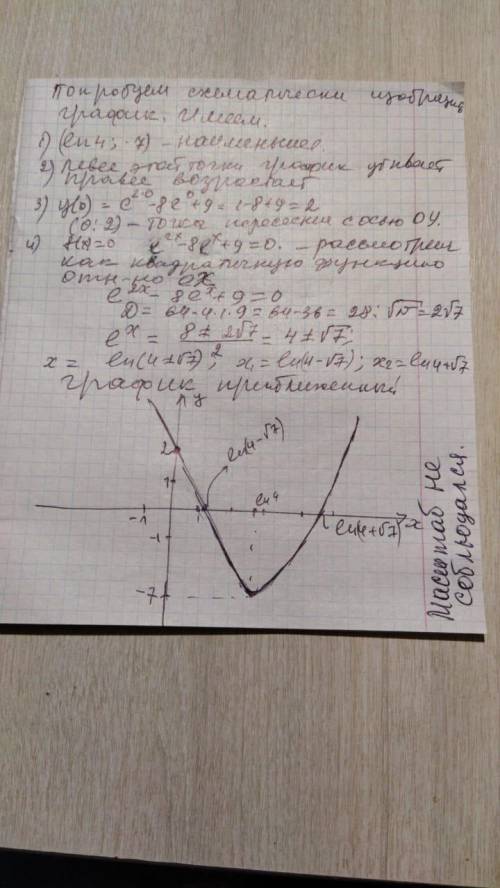 Попробуем схематически изобразить
график. Имеем.
1) (ln4; -7) - наименьшее.
2) Левее этой точки график убывает
правее возрастает
3) y(0) = e^{2·0} - 8e^0 + 9 = 1-8+9=2
(0; 2) - точка пересечен с осью ОУ.
4) f(x)=0 e^{2x}-8e^x+9=0. - рассмотрим
как квадратичную функцию
отн-но e^x
e^{2x} - 8e^x + 9 = 0
D = 64-4·1·9 = 64-36 = 28; √D = 2√7
e^x = \frac{8 ± 2√7}{2} = 4±√7;
x = ln(4±√7); x₁=ln(4-√7); x₂=ln4+√7
график приближенный
y
2
ln(4-√7)
1
ln4
-1
1
ln(4+√7)
x
-1
-7
Масштаб не
соблюдался.